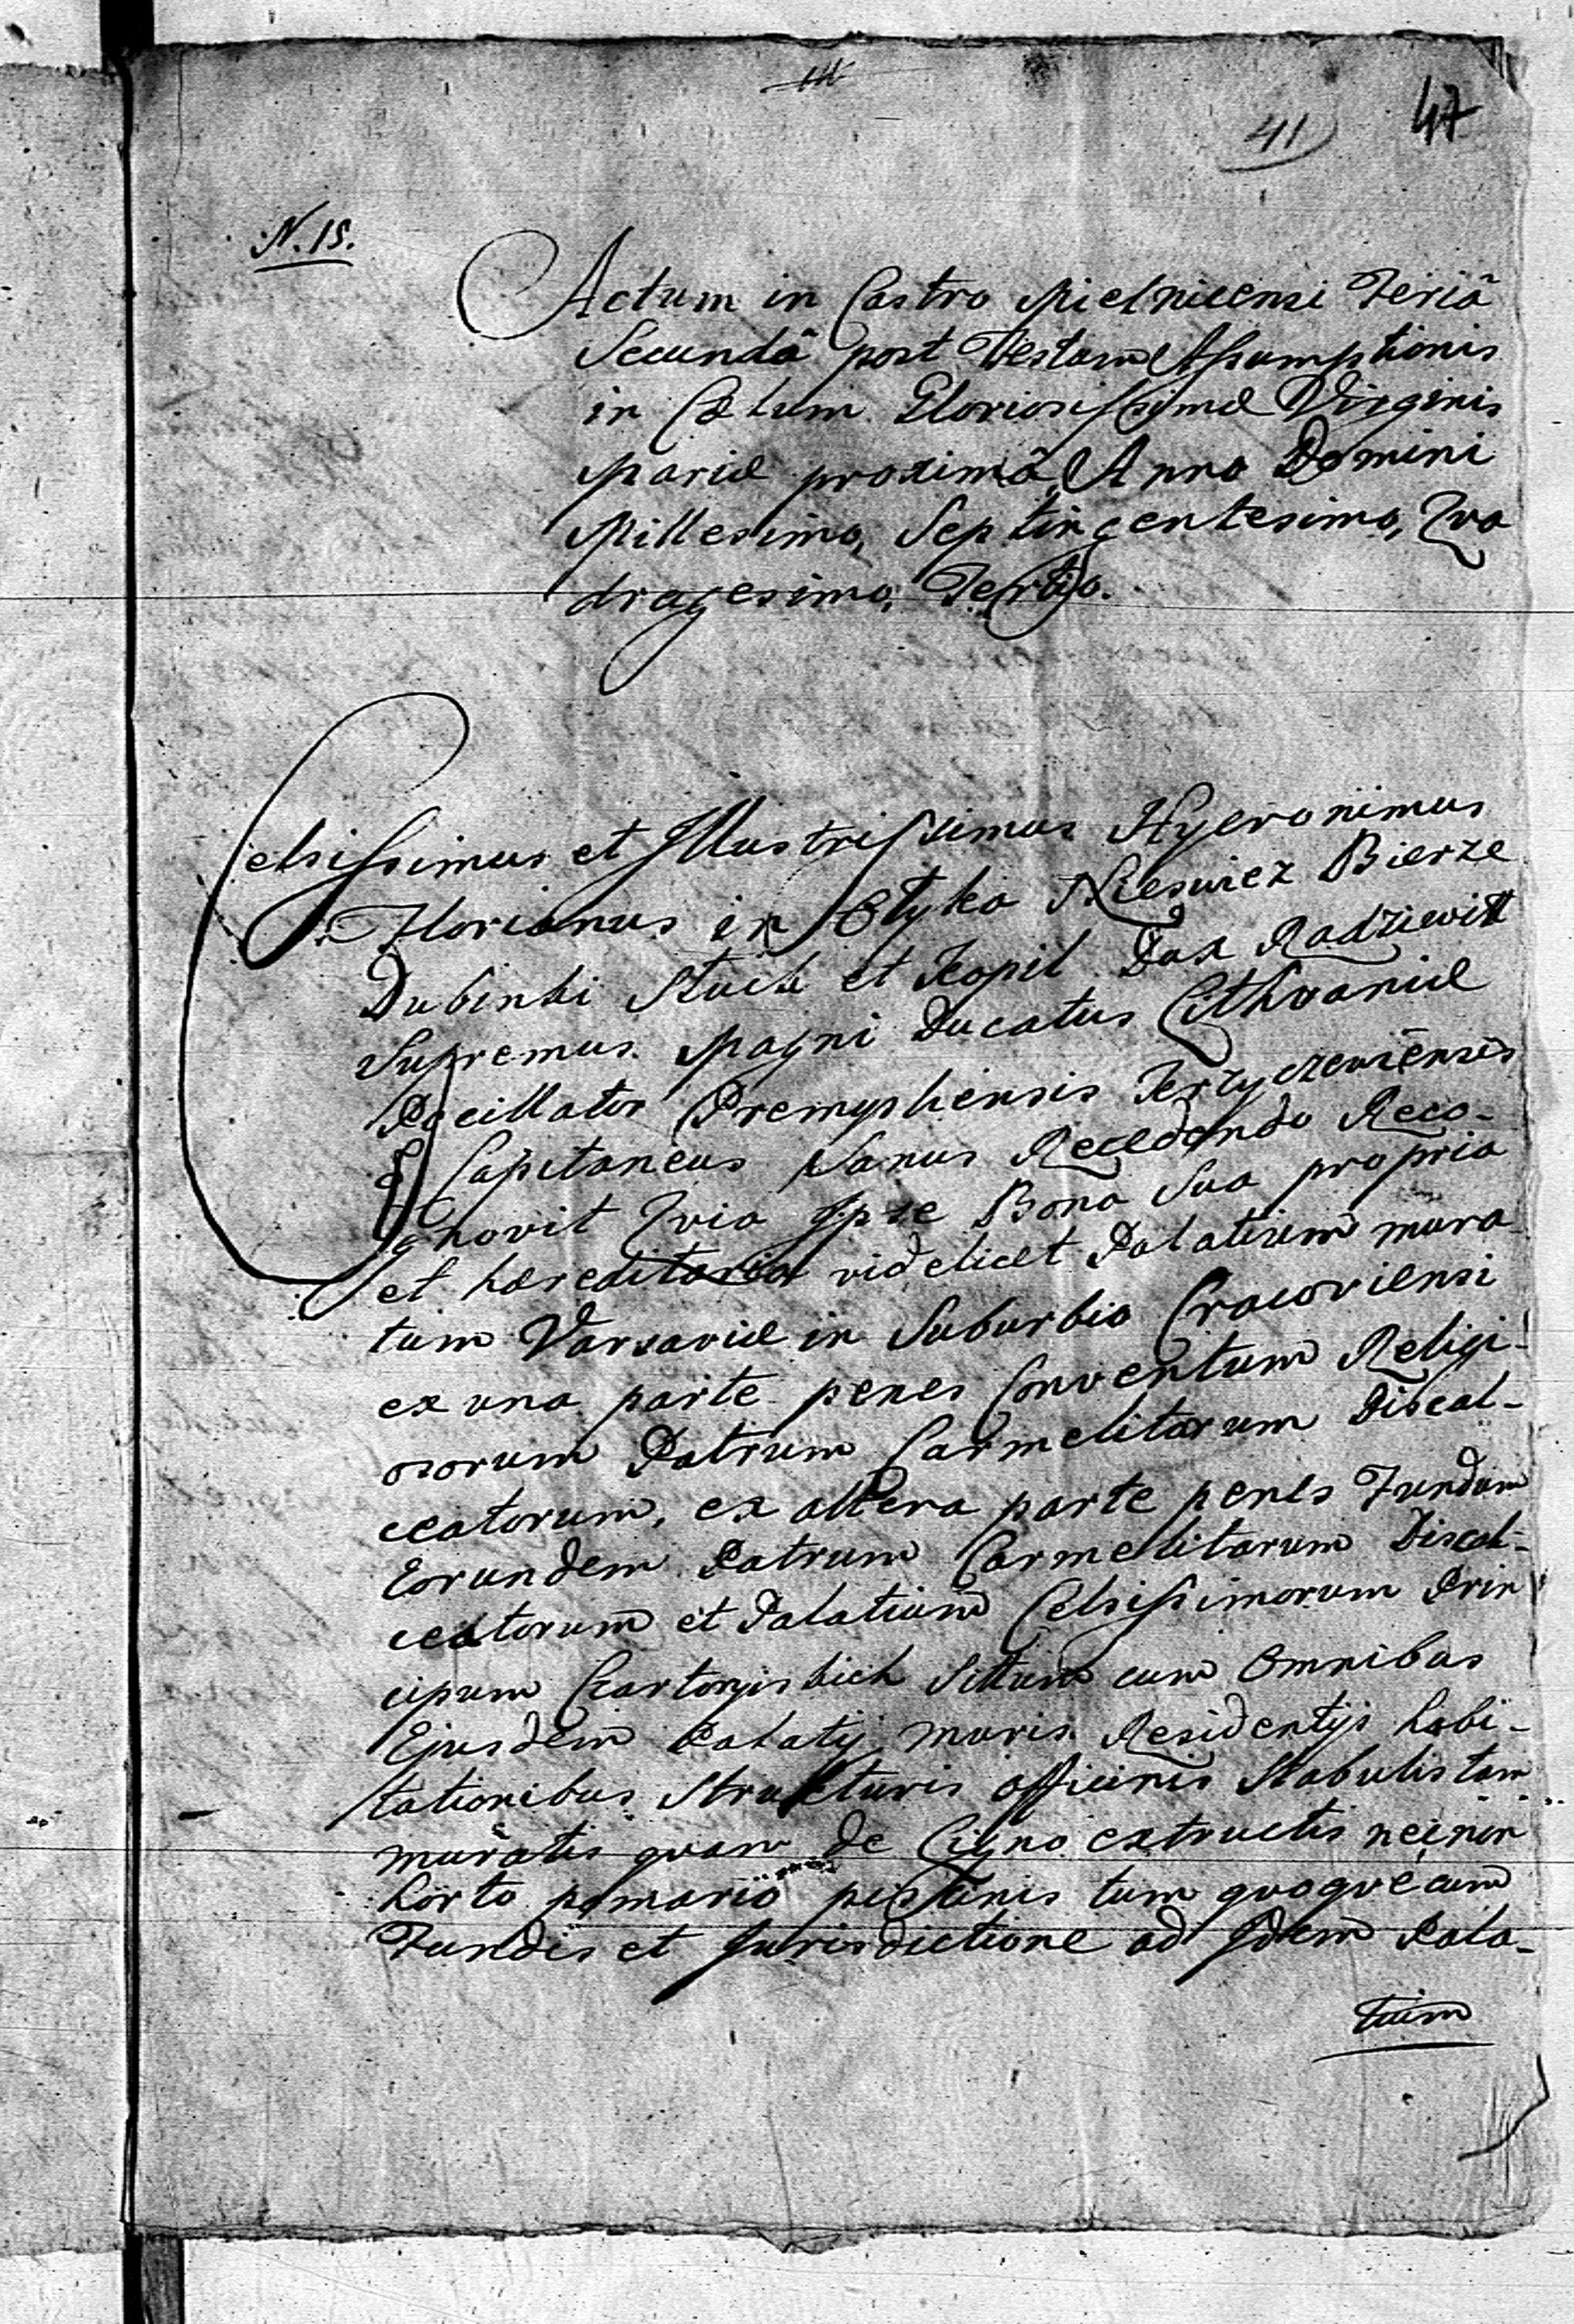 41
47
N. 15.
Actum in Castro Mielnicensi Feriâ
Secundâ post Festum Assumptionis
in Cælum Gloriosissimæ Virginis
Mariæ proximâ, Anno Domini
Millesimo, Septingentesimo, Qva
dragesimo, Tertio.
Celsissimus et Illustrissimus Hyeronimus
Florianus in Olyka Nieswiez Bierze
Dubinki Sluck et Kopil Dux Radziwiłł
Supremus Magni Ducatus Lithvaniæ
Pocillator Præmysliensis Krzyczeviensis
& Capitaneus Sanus Recedendo Reco-
gnovit Qvia Ipse Bona Sua propria
et hæreditaria videlicet Palatium mura
tum Varsaviæ in Suburbio Cracoviensi
ex una parte penes Conventum Religi-
osorum Patrum Carmelitarum Discal-
ceatorum, ex altera parte penes Fundum
Eorundem Patrum Carmelitarum Discal-
ceatorum et Palatium Celsissimorum Prin
cipum Czartoryskich Sittum cum Omnibus
Ejusdem Palatij muris Residentijs habi-
tationibus Strukturis officinis Stabulis tam
muratis quam de Ligno extructis necnon
horto pomario piscinis tum quoque cum
Fundis et Jurisdictione ad Idem Pala-
tium